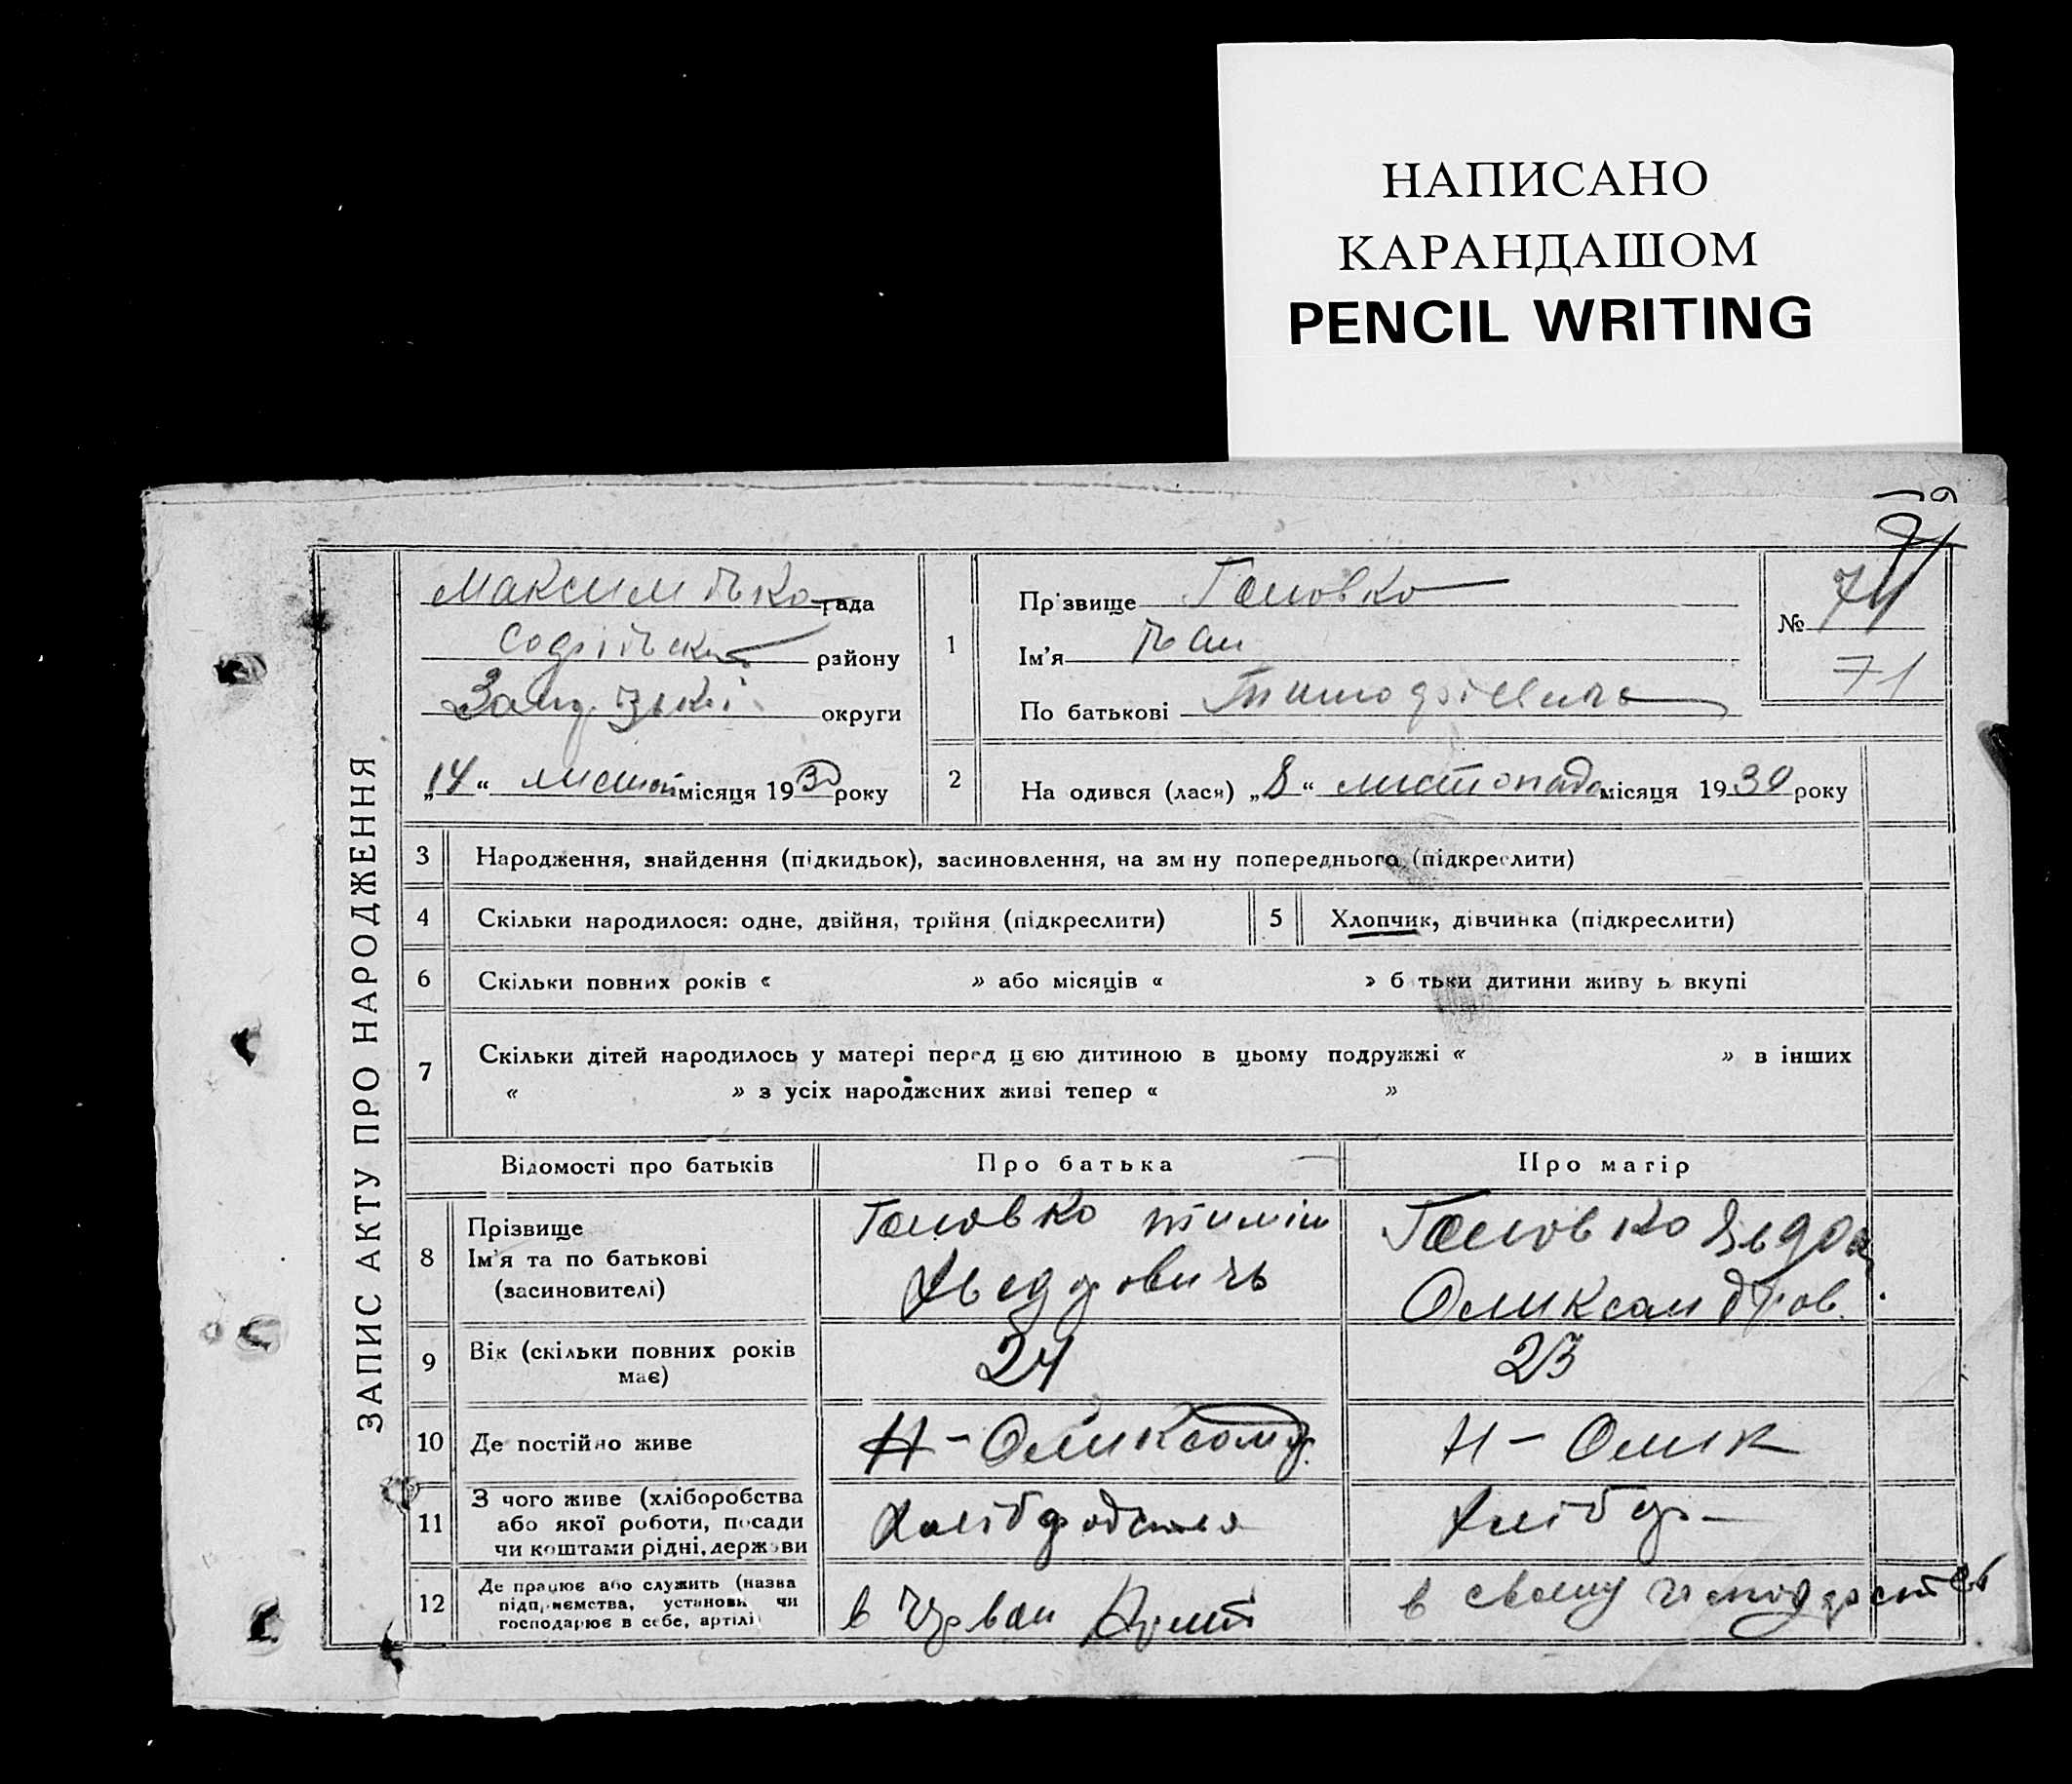 НАПИСАНО
КАРАНДАШОМ
PENCIL WRITING
ЗАПИС АКТУ ПРО НАРОДЖЕННЯ
рада
району
округи
„14“ листоп місяця 1930 року
1
Прізвище Головко
Ім'я
По батькові
№ 74
71
2
На одився (лася) „8“ листопада місяця 1930 року
3 Народження, знайдення (підкидьок), засиновлення, на зм ну попереднього (підкреслити)
4 Скільки народилося: одне, двійня, трійня (підкреслити)
5 Хлопчик, дівчинка (підкреслити)
6 Скільки повних років « » або місяців « » б тьки дитини живу ь вкупі
7 Скільки дітей народилось у матері перед цією дитиною в цьому подружжі « » в інших
« » з усіх народжених живі тепер « »
Відомості про батьків
Про батька
Про матір
8
Прізвище
Ім'я та по батькові
(засиновителі)
Головко Тиміш
Хведорович
Головко Явдоха
Олександров.
9 Вік (скільки повних років
має)
24
23
10 Де постійно живе
Н-Олександр.
Н-Олик
11
З чого живе (хліборобства
або якої роботи, посади
чи коштами рідні, держави
Хлібор
12
Де працює або служить (назва
підприємства, установи чи
господарює в себе, артілі)
в Армі
в свому